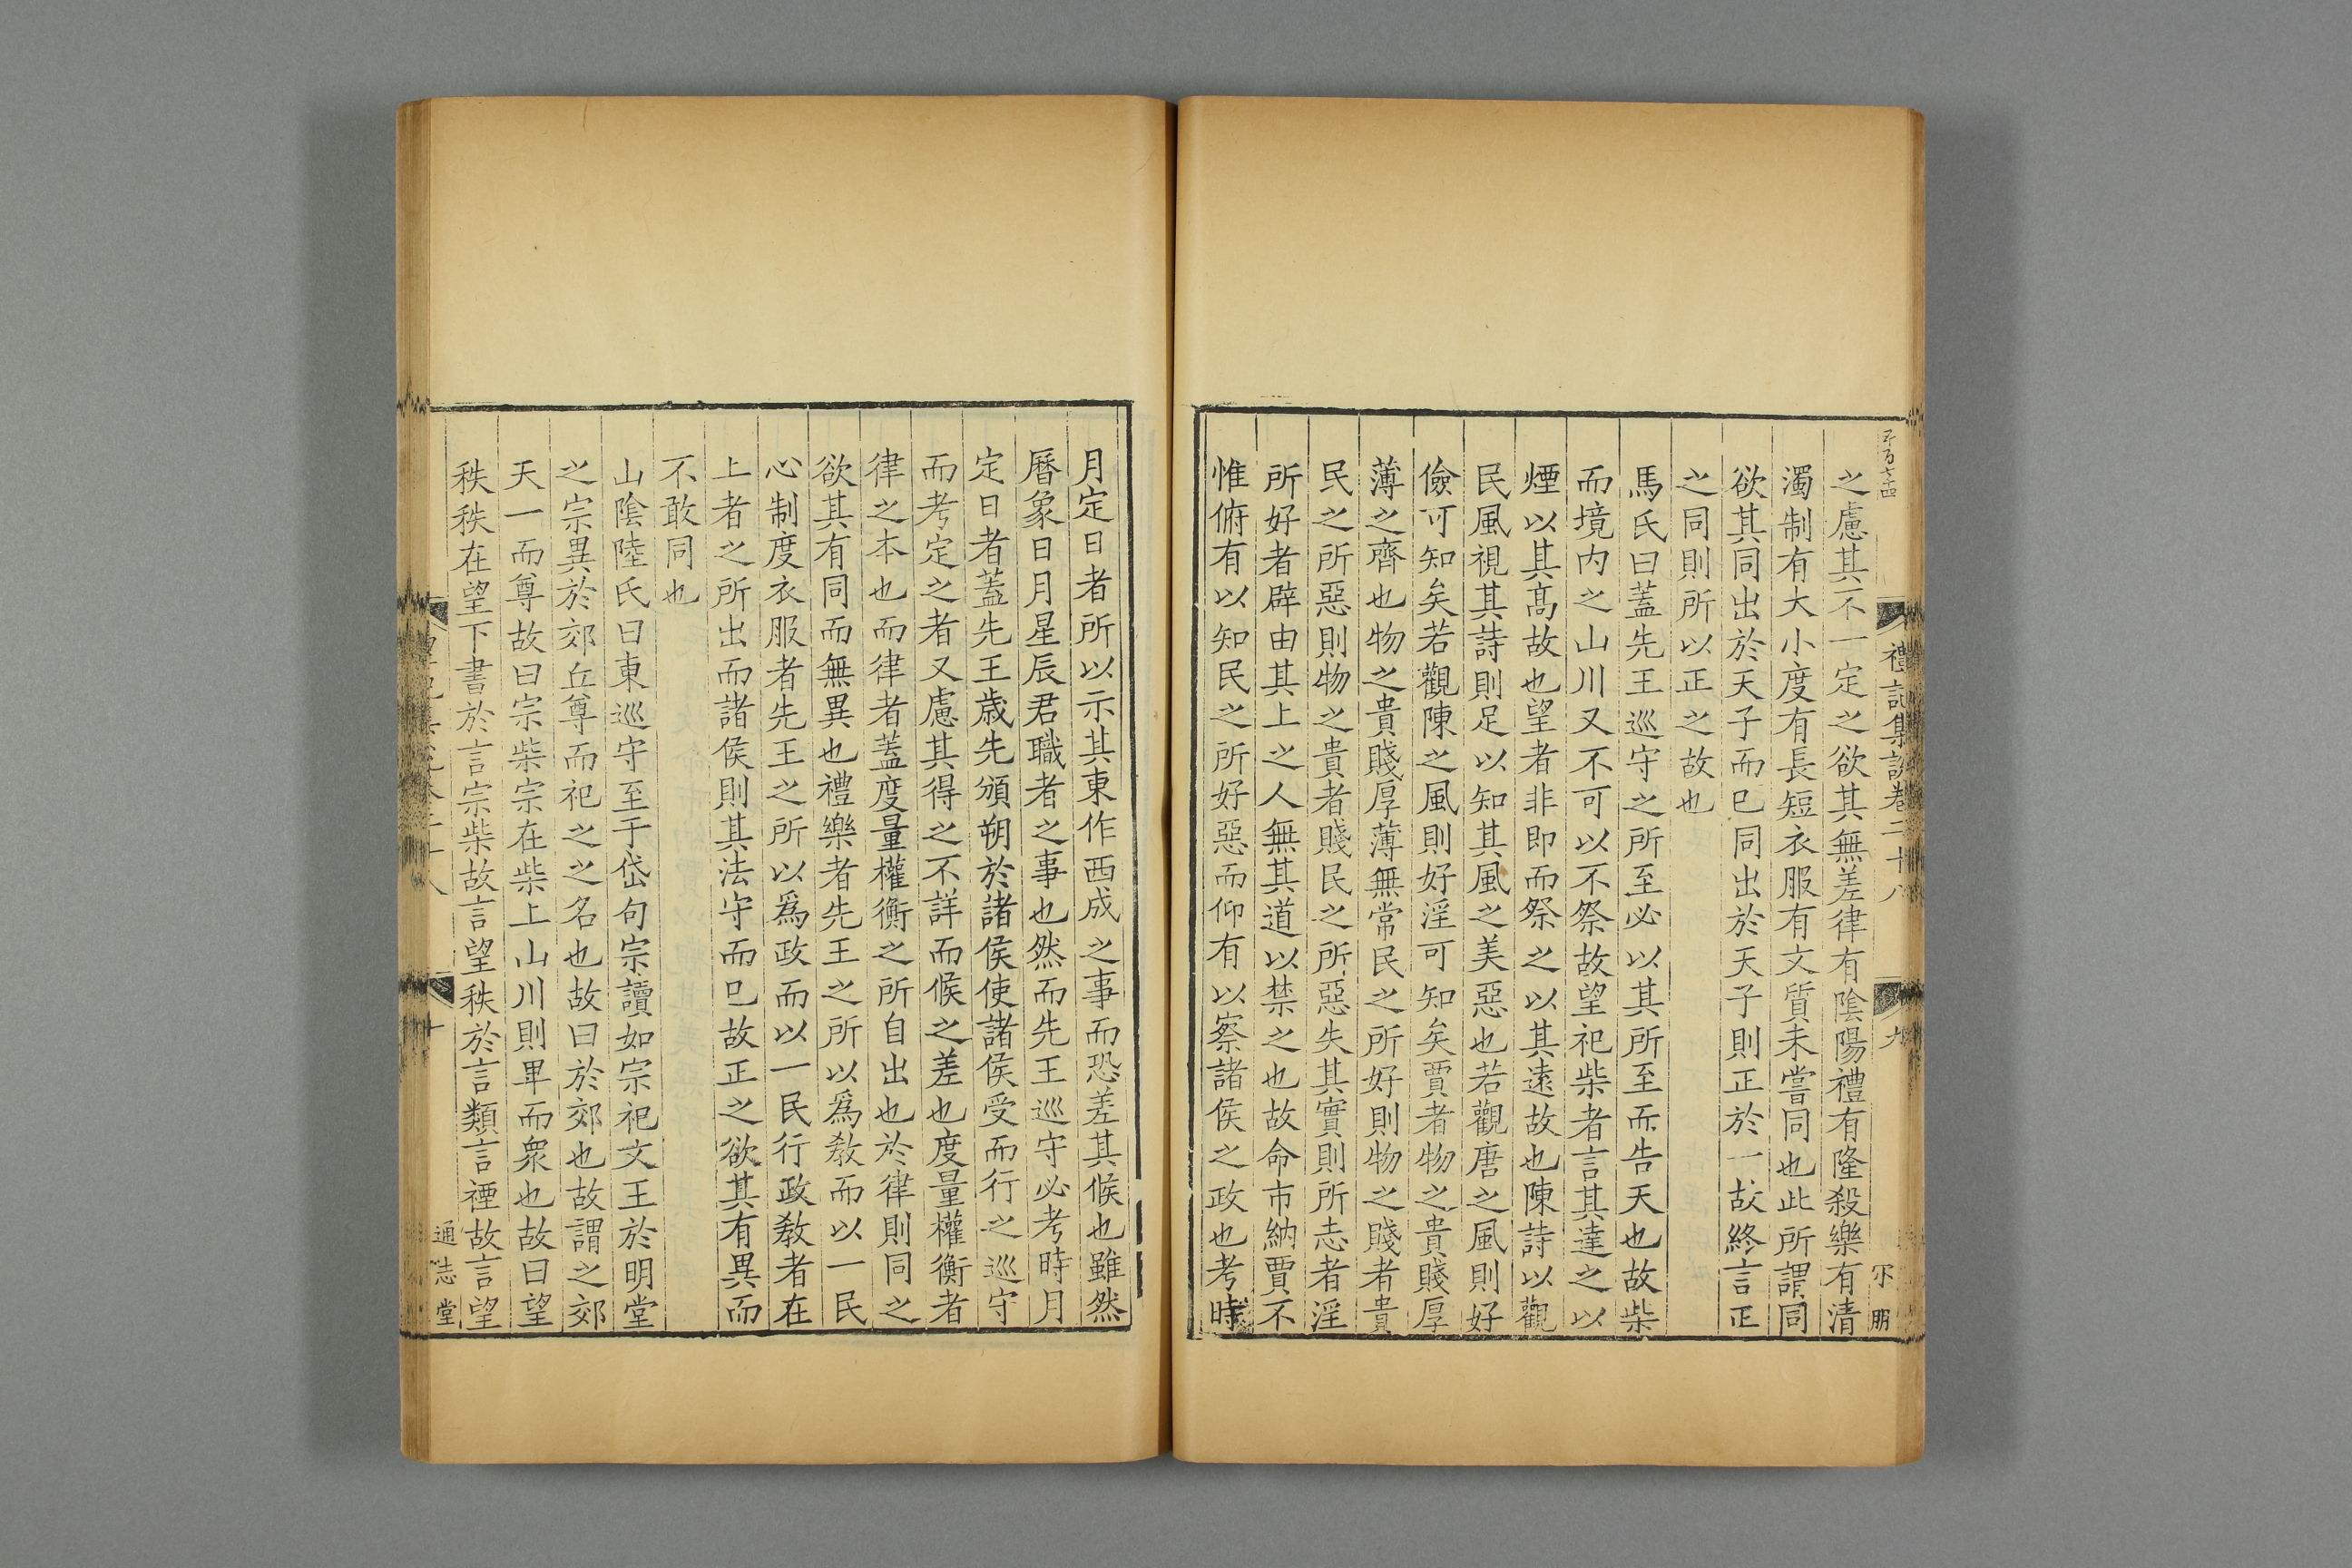 禮記集說卷二十八 九
之慮其不一定之欲其無差律有陰陽禮有隆殺樂有清
濁制有大小度有長短衣服有文質未嘗同也此所謂同
欲其同出於天子而已同出於天子則正於一故終言正
之同則所以正之故也
馬氏曰蓋先王巡守之所至必以其所至而告天也故柴
而境內之山川又不可以不祭故望祀柴者言其達之以
煙以其髙故也望者非即而祭之以其遠故也陳詩以觀
民風視其詩則足以知其風之美惡也若觀唐之風則好
儉可知矣若觀陳之風則好淫可知矣賈者物之貴賤厚
薄之齊也物之貴賤厚薄無常民之所好則物之賤者貴
民之所惡則物之貴者賤民之所惡失其實則所志者淫
所好者辟由其上之人無其道以禁之也故命市納賈不
惟俯有以知民之所好惡而仰有以察諸侯之政也考時
月定日者所以示其東作西成之事而恐差其候也雖然
曆象日月星辰君職者之事也然而先王巡守必考時月
定日者蓋先王歲先頒朔於諸侯使諸侯受而行之巡守
而考定之者又慮其得之不詳而候之差也度量權衡者
律之本也而律者蓋度量權衡之所自出也於律則同之
欲其有同而無異也禮樂者先王之所以爲敎而以一民
心制度衣服者先王之所以爲政而以一民行政敎者在
上者之所出而諸侯則其法守而已故正之欲其有異而
不敢同也
山陰陸氏曰東巡守至于岱句宗讀如宗祀文王於明堂
之宗異於郊丘尊而祀之之名也故曰於郊也故謂之郊
天一而尊故曰宗柴宗在柴上山川則畢而衆也故曰望
秩秩在望下書於言宗柴故言望秩於言類言禋故言望
通志堂